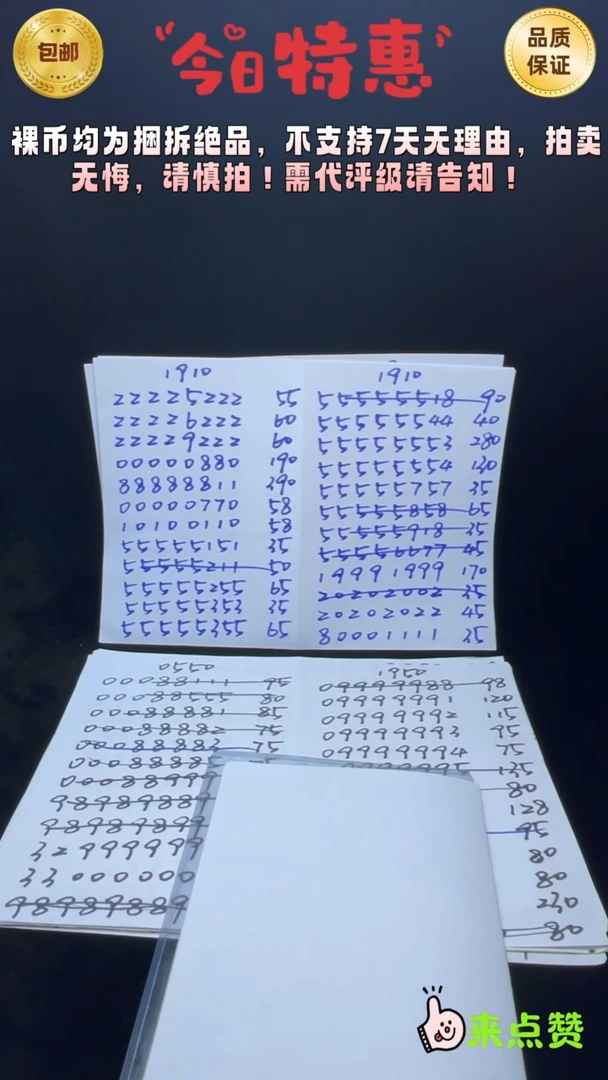 包邮
今日特惠
品质
保证
裸币均为捆拆绝品，不支持7天无理由，拍卖
无悔，请慎拍！需代评级请告知！
1910
22225222 55
22226222 60
22229222 60
00000880 190
88888811 390
00000770 58
10100110 58
55555151 35
55555211 50
55555255 65
55555353 35
55555355 65
1910
55555518 90
55555544 40
55555553 280
55555554 130
55555757 35
55555858 65
55555918 35
55556677 45
19991999 170
20202002 35
20202022 45
80001111 35
0550
00088111 95
00088555 80
00088881 85
00088882 75
00088883 75
0008885
00088999
98989889
98989899
32999999
33000000
98989889
1950
09999988 98
09999991 120
09999992 115
09999993 95
09999994 75
135
80
128
95
80
80
230
80
来点赞